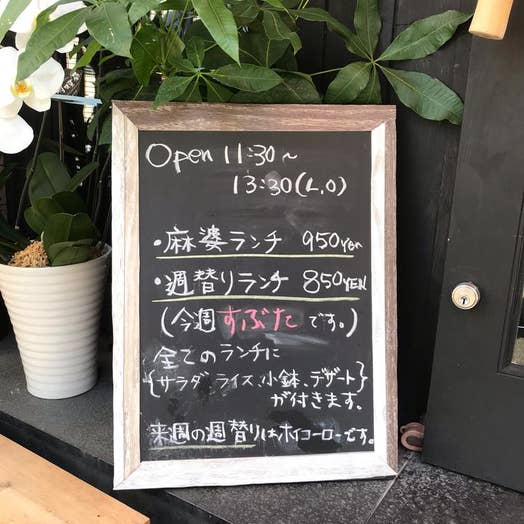 Open 11:30~
13:30(L.O)
・麻婆ランチ 950YEN
・週替りランチ 850YEN
(今週すぶたです。)
全てのランチに
{サラダ、ライス、小鉢、デザート}
が付きます。
来週の週替りはホイコーローです。